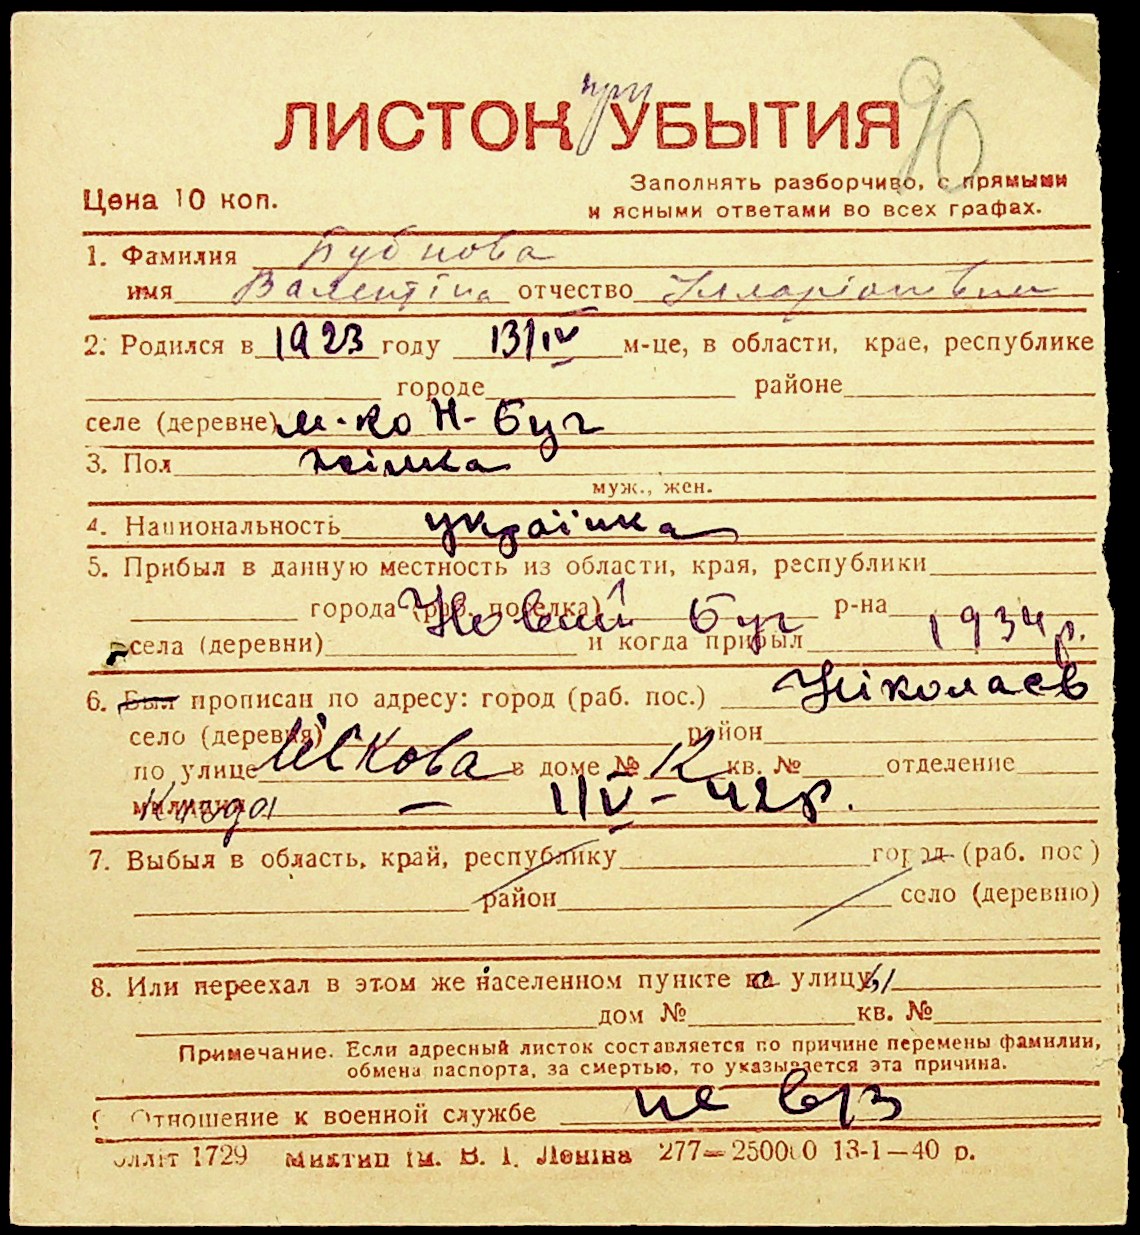 при 90
ЛИСТОК УБЫТИЯ
Заполнять разборчиво, с прямыми
Цена 10 коп.
и ясными ответами во всех графах.
1. Фамилия Бубнова
имя Валентіна отчество
2. Родился в 1923 году 13/IV м-це, в области, крае, республике
городе районе
селе (деревне) м-ко Н-Буг
3. Пол жінка
муж., жен.
4. Национальность українка
5. Прибыл в данную местность из области, края, республики
города (раб. поселка) Новий Буг р-на
села (деревни) и когда прибыл 1934 р.
6. Был прописан по адресу: город (раб. пос.) Ніколаєв
село (деревня) район
по улице в доме № кв. № отделение
милиции 1/V - 42 р.
7. Выбыл в область, край, республику город (раб. пос)
район село (деревню)
8. Или переехал в этом же населенном пункте на улицу
дом № кв. №
Примечание. Если адресный листок составляется по причине перемены фамилии,
обмена паспорта, за смертью, то указывается эта причина.
9 Отношение к военной службе не в/з
олліт 1729 Миктип ім. В. І. Леніна 277—250000 13-1—40 р.